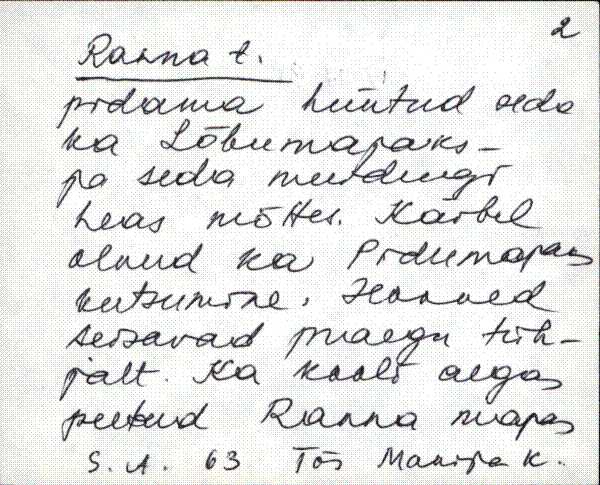 2
Ranna t.
pidama hüütud seda
ka Lõbumajaks -
ja seda muidugi
heas mõttes. Käibel
olnud ka Pidumajas
kutsumine. Hooned
seisavad praegu tüh-
jalt. Ka kooli aegas
peetud Ranna majas
S. A. 63 Tõs Manija k.